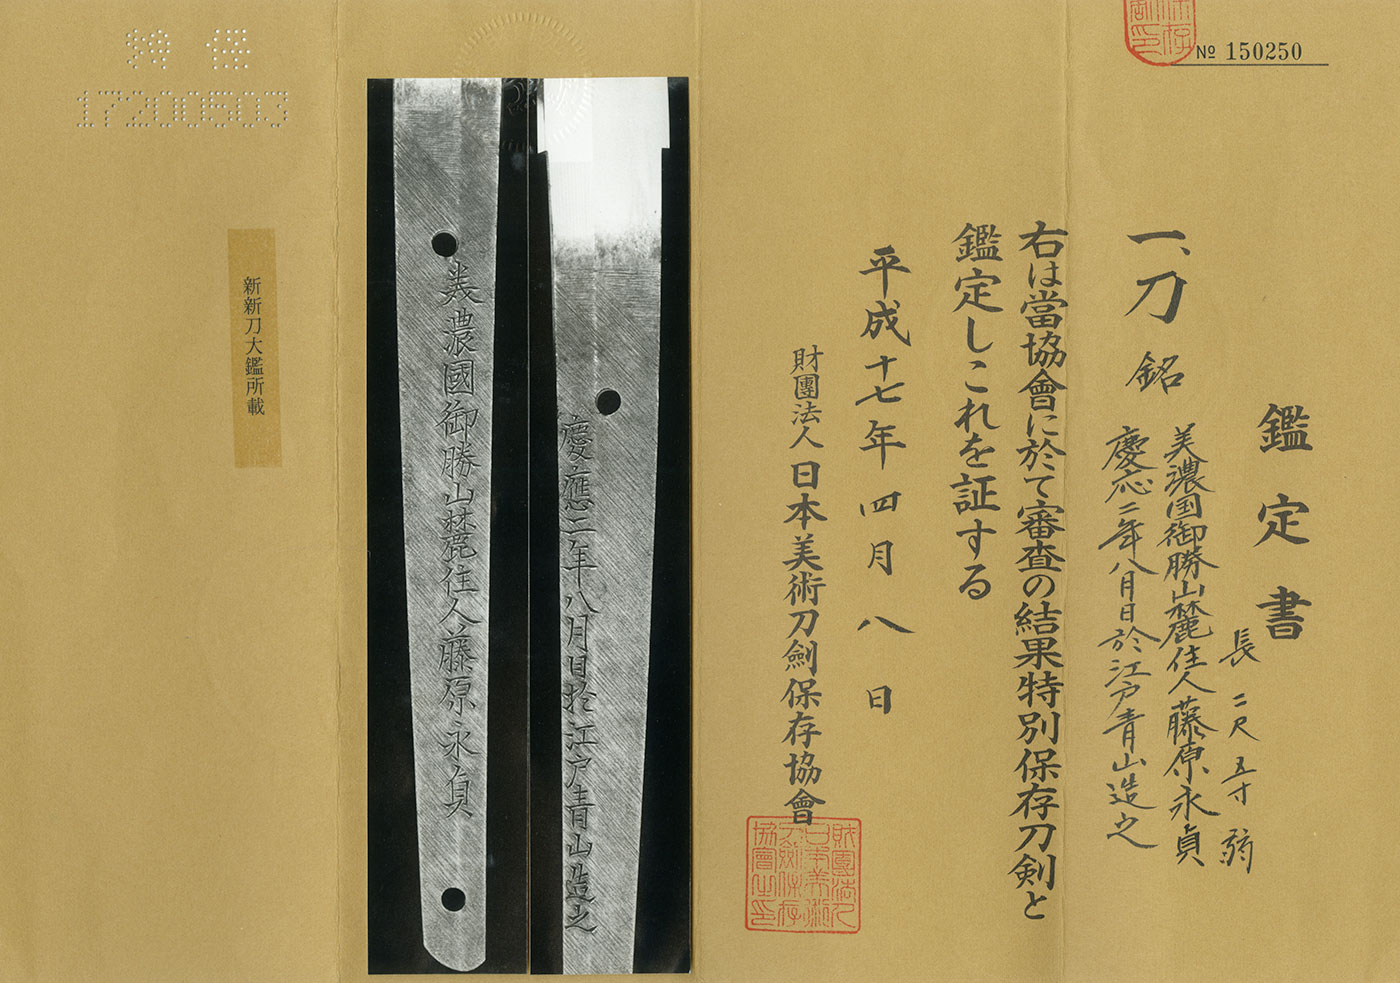 № 150250
鑑定書
一、刀 銘 美濃国御勝山麓住人藤原永貞
慶応二年八月日於江戸青山造之
長 二尺五寸弱
右は當協會に於て審査の結果特別保存刀剣と
鑑定しこれを証する
平成十七年四月八日
財團法人日本美術刀劍保存協會
財團法人日本美術刀劍保存協會之印
慶應二年八月日於江戸青山造之
美濃國御勝山麓住人藤原永貞
新新刀大鑑所載
17200503